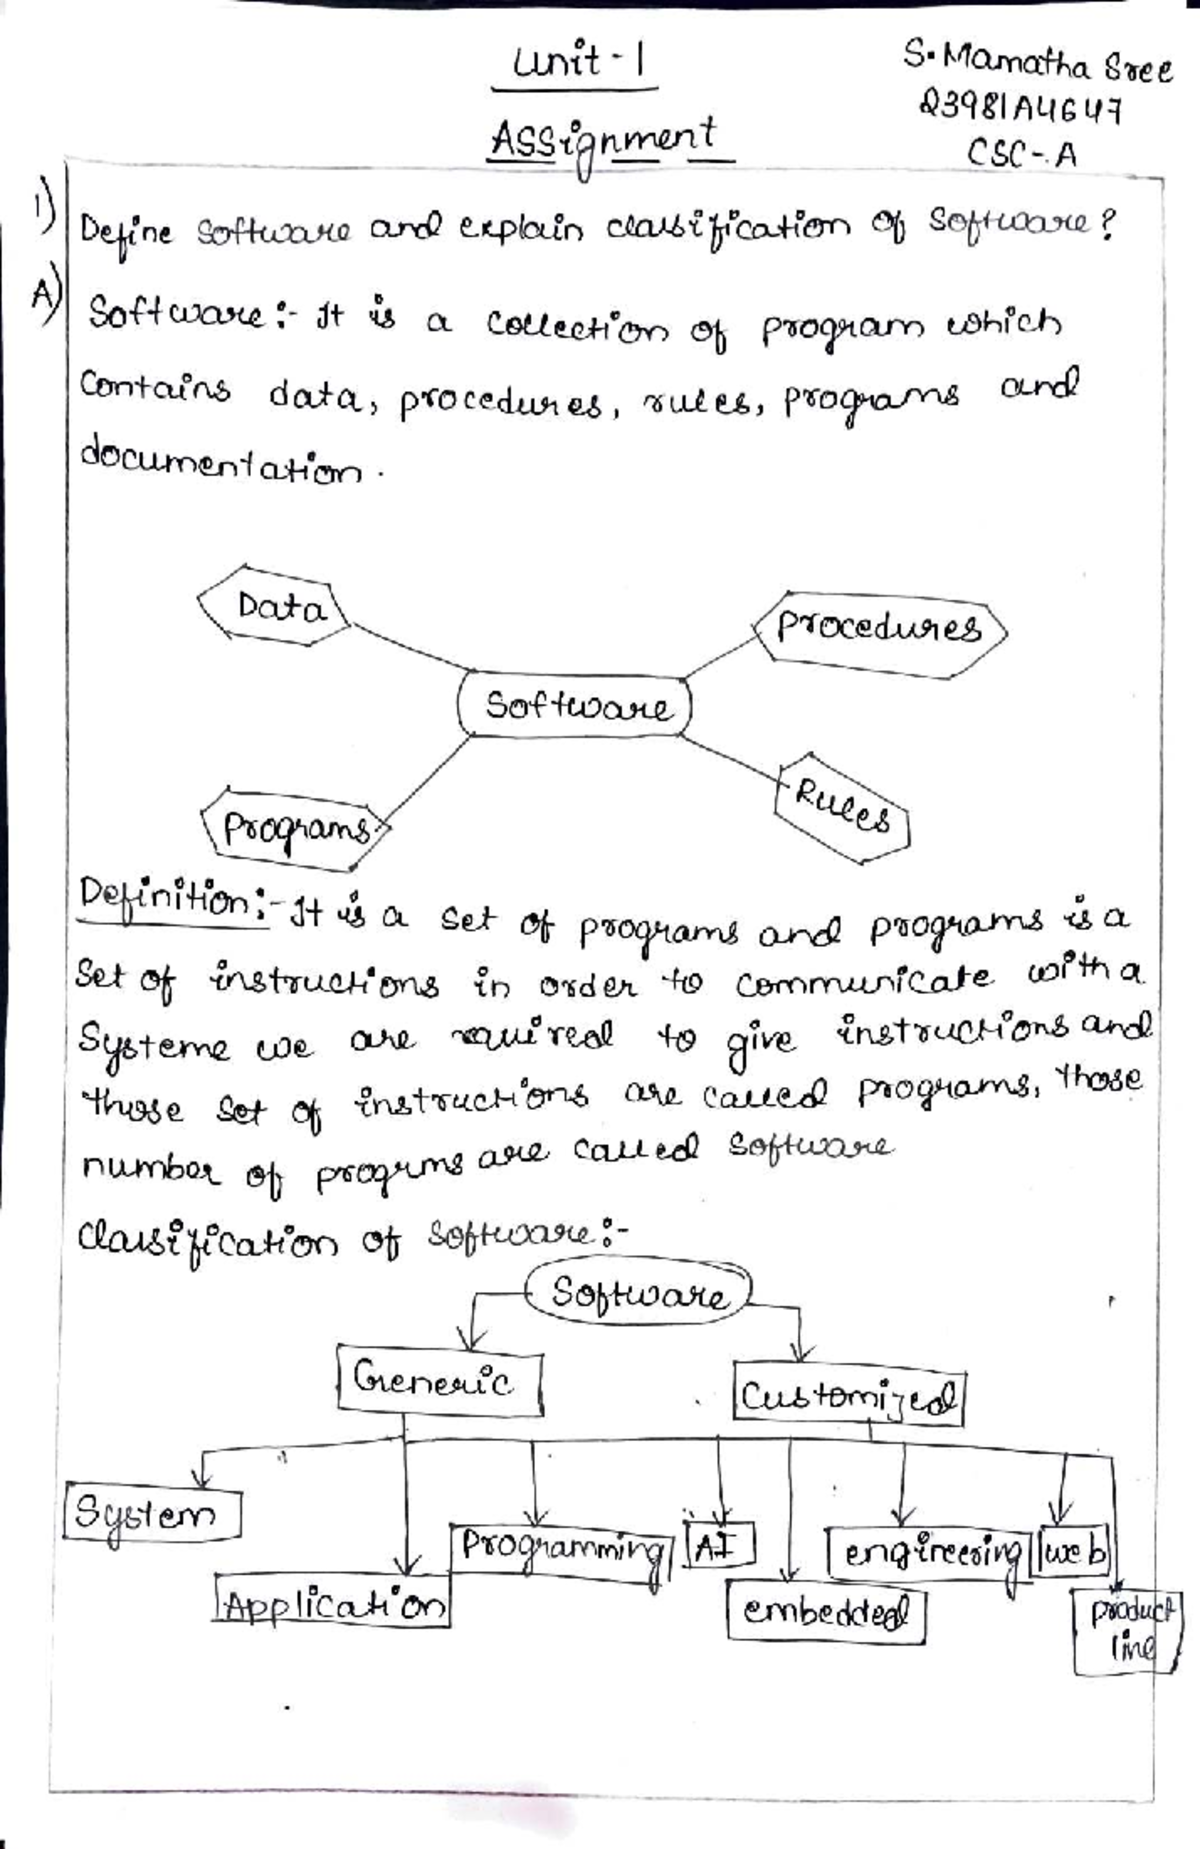 Unit-1
S. Mamatha Sree
23981A4647
CSC-A
Assignment
1) Define Software and explain classification of Software?
A) Software:- It is a collection of program which
contains data, procedures, rules, programs and
documentation.
Data
Procedures
Software
Rules
Programs
Definition:- It is a set of programs and programs is a
set of instructions in order to communicate with a
Systeme we are required to give instructions and
those set of instructions are called programs, those
number of progrms are called Software
Classification of Software:-
Software
Generic
Customized
System
Programming
AI
engineering
web
Application
embedded
product
line